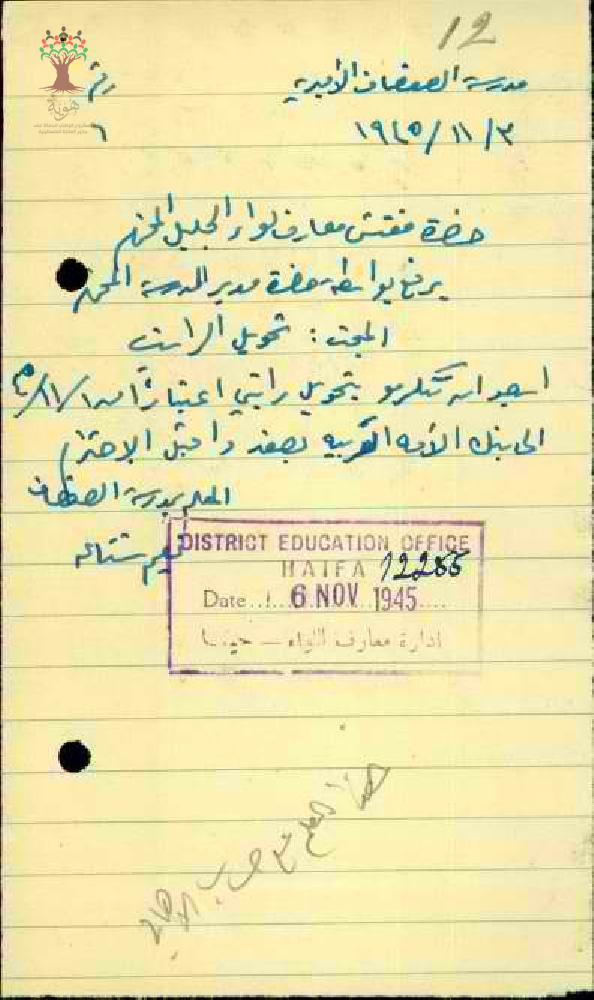 12
مدرسة الصفصاف الأميرية
رقم
٣/١١/١٩٤٥
٦
حضرة مفتش معارف لواء الجليل المحترم
يرفع بواسطة حضرة مدير المدرسة المحترم
المبحث: تحويل الراتب
ارجو ان تتكرموا بتحويل راتبي اعتباراً من ١/١١/٤٥
الى بنك الأمة العربية بصفد واقبلوا الاحترام
المعلم بمدرسة الصفصاف
DISTRICT EDUCATION OFFICE
HAIFA 12266
Date 6 NOV 1945
ادارة معارف اللواء – حيفا
هذا المعلم